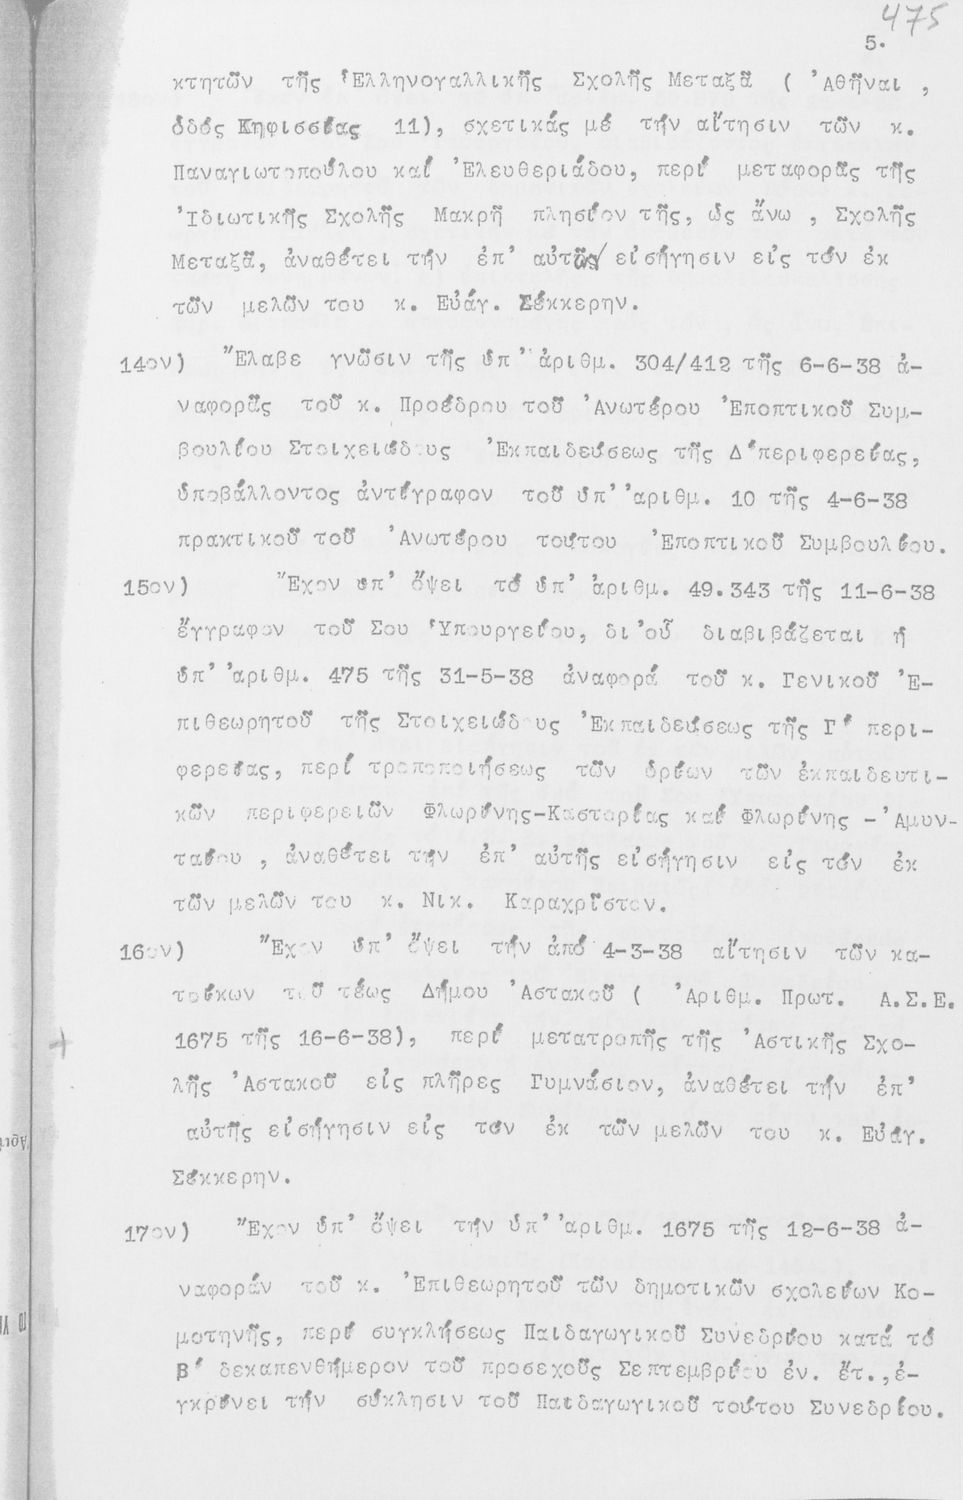 475
5.
κτητῶν τῆς Ἑλληνογαλλικῆς Σχολῆς Μεταξᾶ ( Ἀθῆναι ,
ὁδός Κηφισσίας 11), σχετικάς μέ τήν αἴτησιν τῶν κ.
Παναγιωτοπούλου καί Ἐλευθεριάδου, περί μεταφορᾶς τῆς
Ἰδιωτικῆς Σχολῆς Μακρῆ πλησίον τῆς, ὡς ἄνω , Σχολῆς
Μεταξᾶ, ἀναθέτει τήν ἐπ' αὐτῆς εἰσήγησιν εἰς τόν ἐκ
τῶν μελῶν του κ. Εὐάγ. Σέκκερην.
14ον) Ἔλαβε γνῶσιν τῆς ὑπ' ἀριθμ. 304/412 τῆς 6-6-38 ἀ-
ναφορᾶς τοῦ κ. Προέδρου τοῦ Ἀνωτέρου Ἐποπτικοῦ Συμ-
βουλίου Στοιχειώδους Ἐκπαιδεύσεως τῆς Δ'περιφερείας,
ὑποβάλλοντος ἀντίγραφον τοῦ ὑπ' ἀριθμ. 10 τῆς 4-6-38
πρακτικοῦ τοῦ Ἀνωτέρου τούτου Ἐποπτικοῦ Συμβουλίου.
15ον) Ἔχον ὑπ' ὄψει τό ὑπ' ἀριθμ. 49.343 τῆς 11-6-38
ἔγγραφον τοῦ Σου Ὑπουργείου, δι'οὗ διαβιβάζεται ἡ
ὑπ' ἀριθμ. 475 τῆς 31-5-38 ἀναφορά τοῦ κ. Γενικοῦ Ἐ-
πιθεωρητοῦ τῆς Στοιχειώδους Ἐκπαιδεύσεως τῆς Γ' περι-
φερείας, περί τροποποιήσεως τῶν ὁρίων τῶν ἐκπαιδευτι-
κῶν περιφερειῶν Φλωρίνης-Καστορίας καί Φλωρίνης -Ἀμυν-
ταίου , ἀναθέτει τήν ἐπ' αὐτῆς εἰσήγησιν εἰς τόν ἐκ
τῶν μελῶν του κ. Νικ. Καραχρῖστον.
16ον) Ἔχον ὑπ' ὄψει τήν ἀπό 4-3-38 αἴτησιν τῶν κα-
τοίκων τοῦ τέως Δήμου Ἀστακοῦ ( Ἀριθμ. Πρωτ. Α.Σ.Ε.
1675 τῆς 16-6-38), περί μετατροπῆς τῆς Ἀστικῆς Σχο-
λῆς Ἀστακοῦ εἰς πλῆρες Γυμνάσιον, ἀναθέτει τήν ἐπ'
αὐτῆς εἰσήγησιν εἰς τόν ἐκ τῶν μελῶν του κ. Εὐάγ.
Σέκκερην.
17ον) Ἔχον ὑπ' ὄψει τήν ὑπ' ἀριθμ. 1675 τῆς 12-6-38 ἀ-
ναφοράν τοῦ κ. Ἐπιθεωρητοῦ τῶν δημοτικῶν σχολείων Κο-
μοτηνῆς, περί συγκλήσεως Παιδαγωγικοῦ Συνεδρίου κατά τό
Β' δεκαπενθήμερον τοῦ προσεχοῦς Σεπτεμβρίου ἐν. ἔτ.,ἐ-
γκρίνει τήν σύκλησιν τοῦ Παιδαγωγικοῦ τούτου Συνεδρίου.